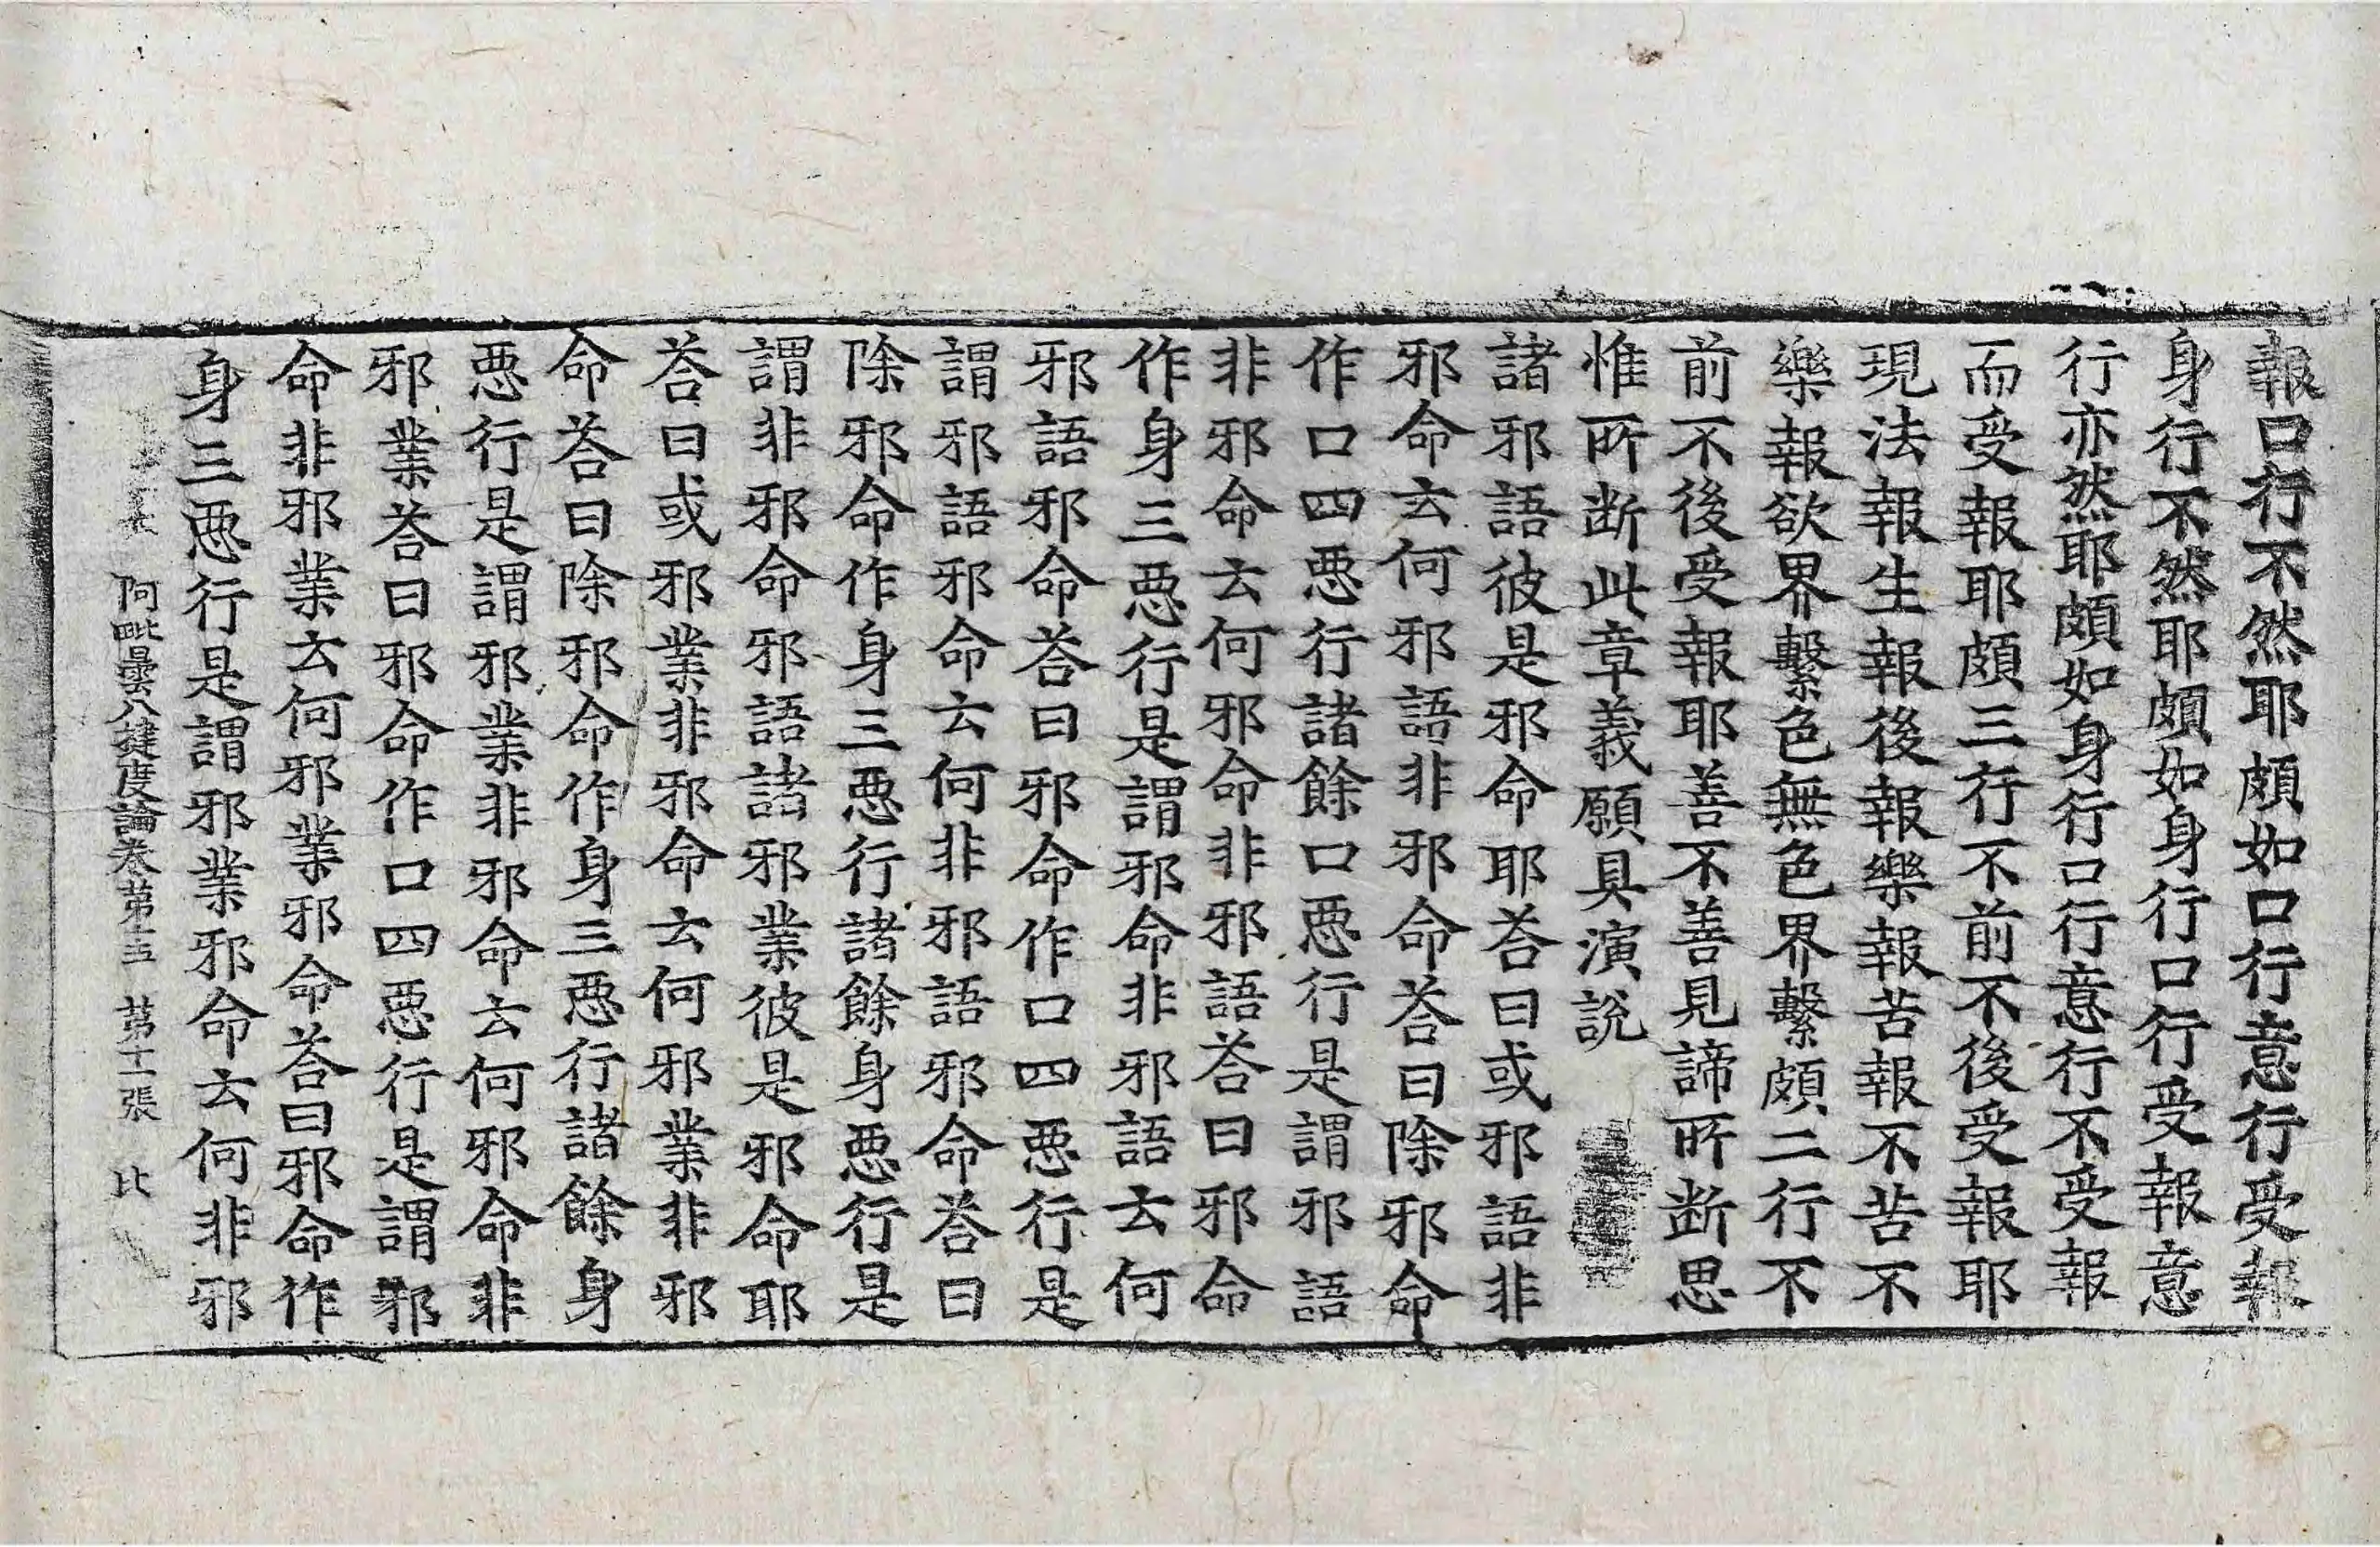 報口行不然耶頗如口行意行受報
身行不然耶頗如身行口行受報意
行亦然耶頗如身行口行意行不受報
而受報耶頗三行不前不後受報耶
現法報生報後報樂報苦報不苦不
樂報欲界繫色無色界繫頗二行不
前不後受報耶善不善見諦所断思
惟所断此章義願具演説
諸邪語彼是邪命耶荅曰或邪語非
邪命云何邪語非邪命荅曰除邪命
作口四惡行諸餘口惡行是謂邪語
非邪命云何邪命非邪語荅曰邪命
作身三惡行是謂邪命非邪語云何
邪語邪命荅曰邪命作口四惡行是
謂邪語邪命云何非邪語邪命荅曰
除邪命作身三惡行諸餘身惡行是
謂非邪命邪語諸邪業彼是邪命耶
荅曰或邪業非邪命云何邪業非邪
命荅曰除邪命作身三惡行諸餘身
惡行是謂邪業非邪命云何邪命非
邪業荅曰邪命作口四惡行是謂邪
命非邪業云何邪業邪命荅曰邪命作
身三惡行是謂邪業邪命云何非邪
阿毗曇八揵度論卷第十五 第十二張 比